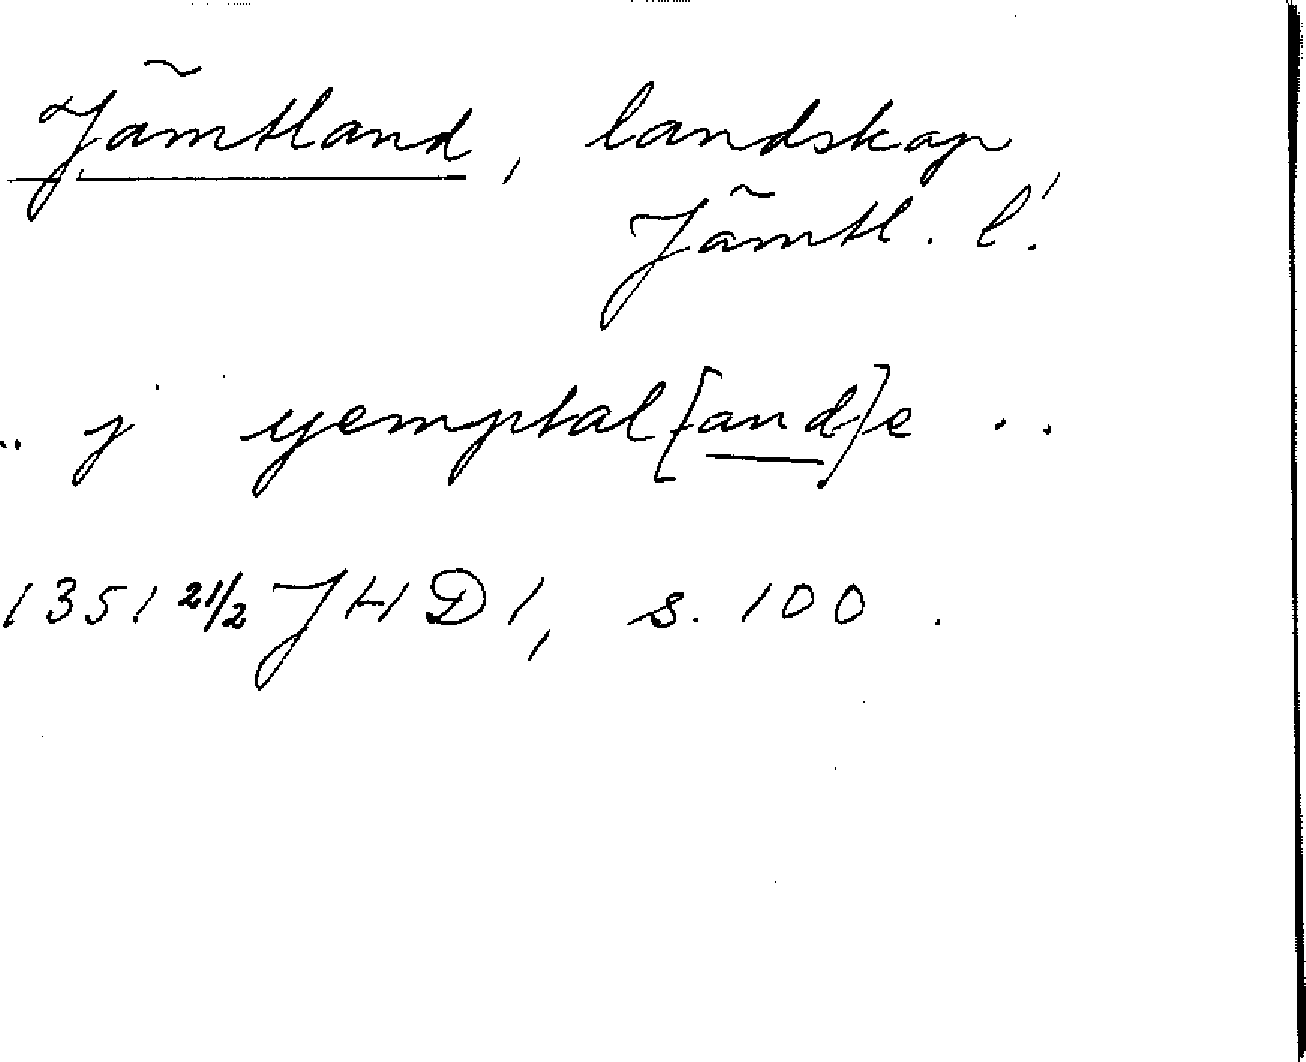 Jämtland, landskap
Jämtl. l.
.. j yemptal[and]e ..
1351 21/2 JHD 1, s. 100.